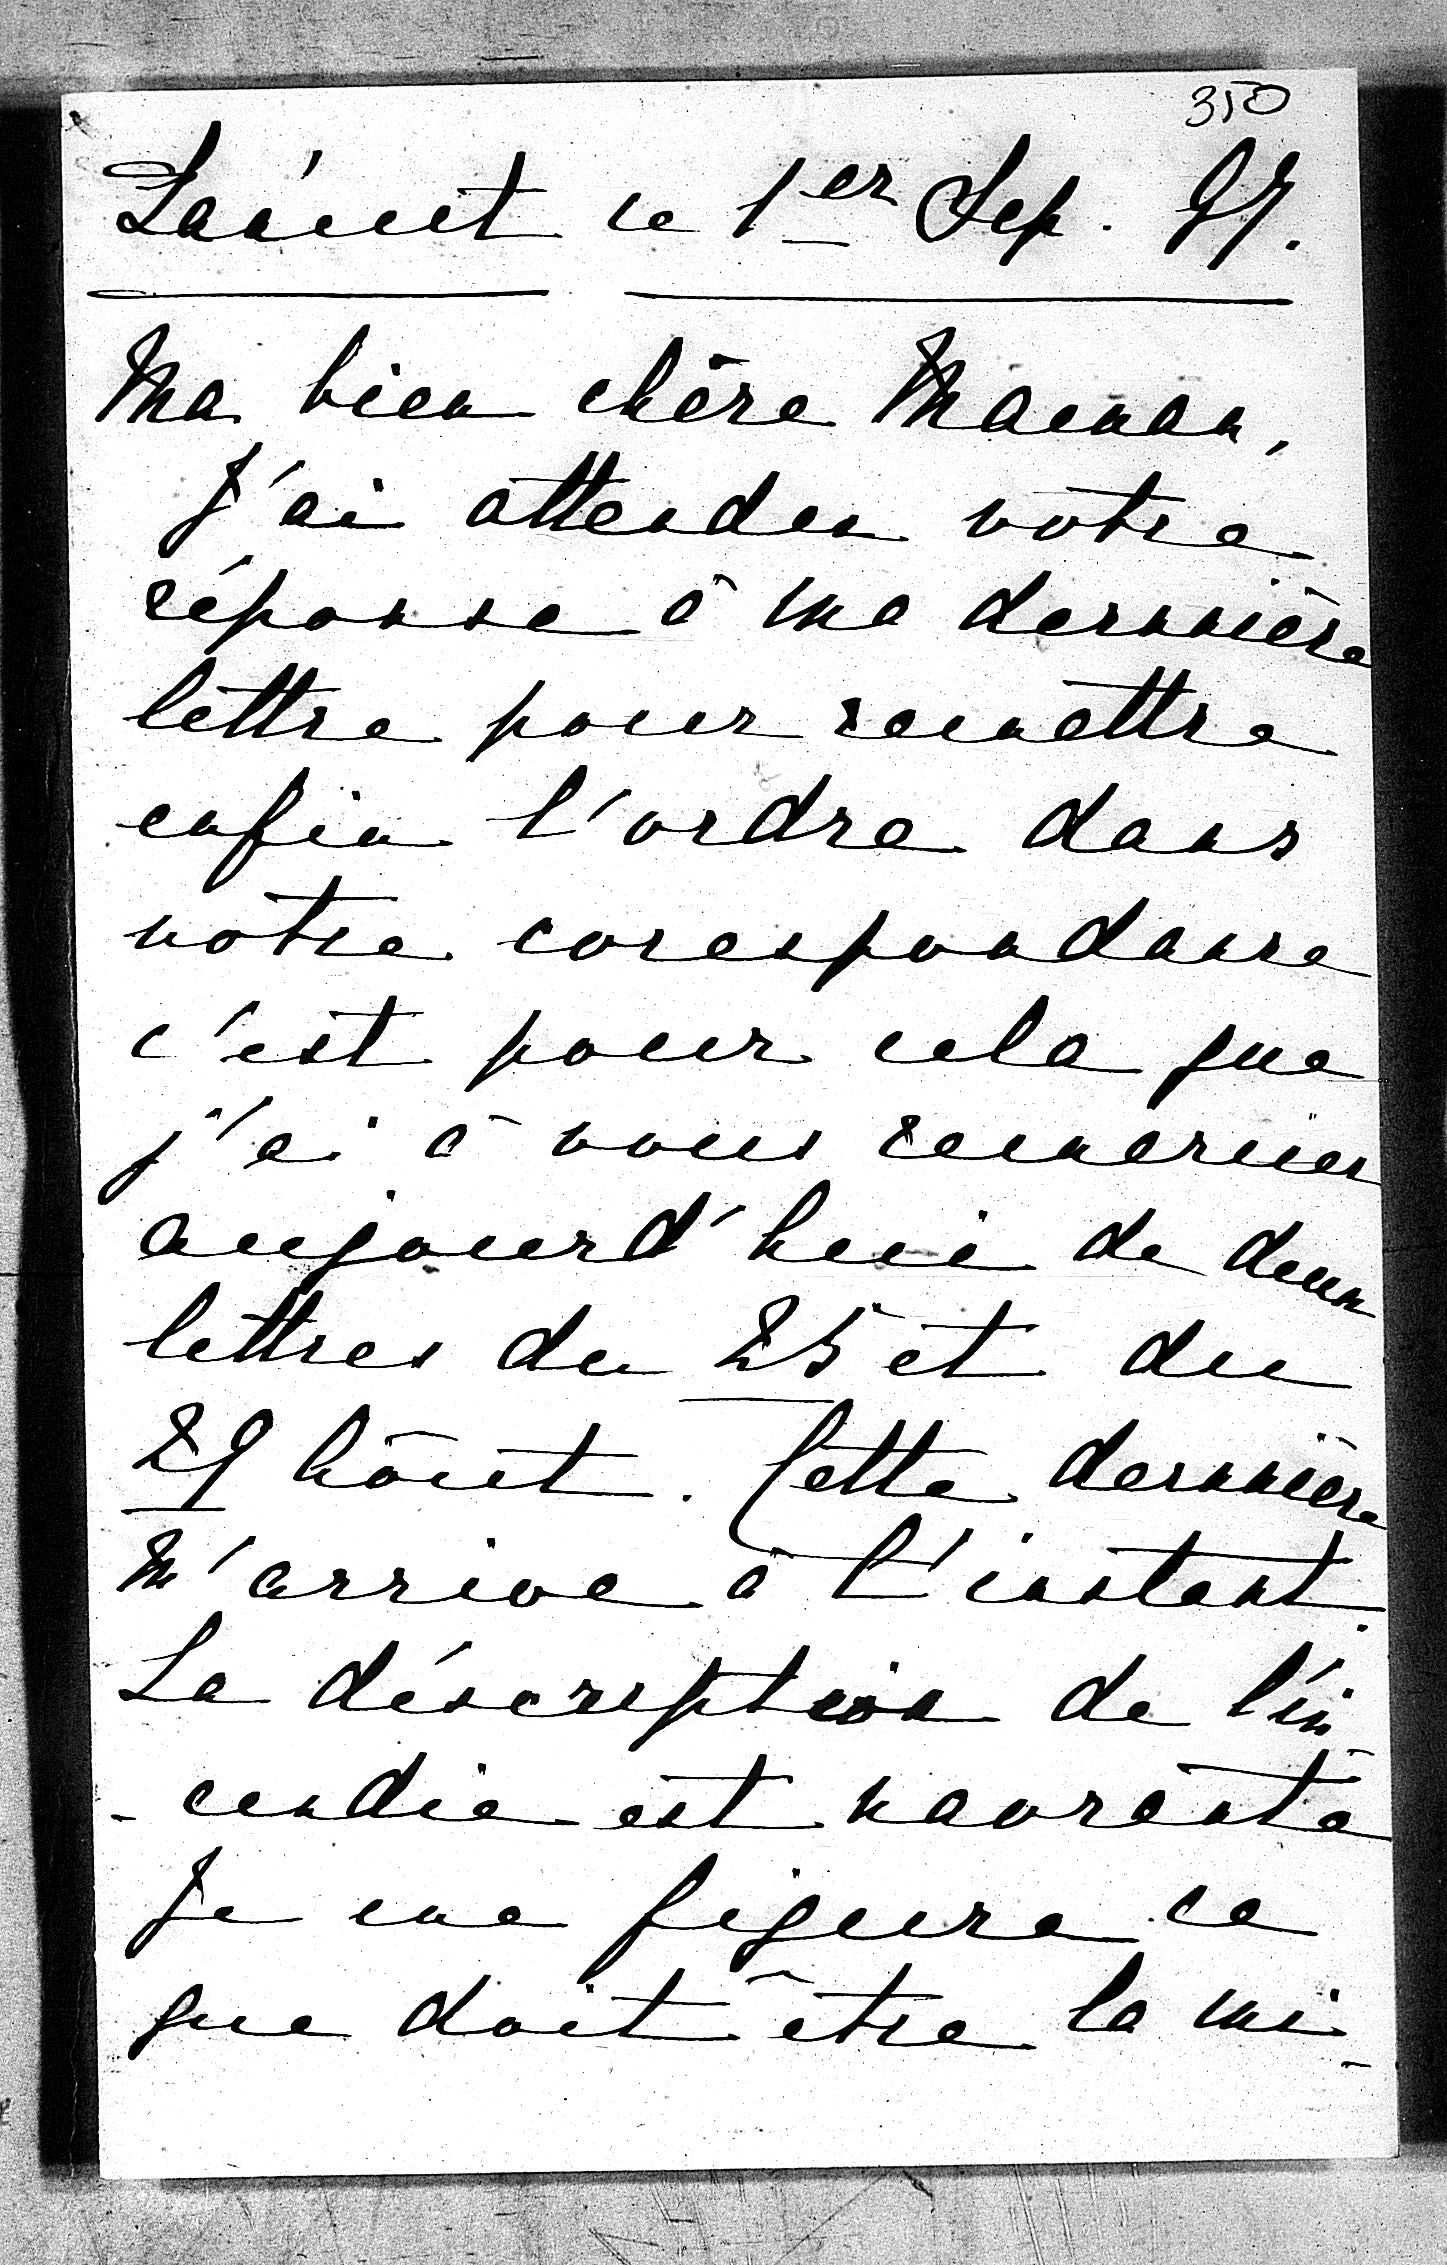 350
Laánet ce 1er Sep. 97.
Ma bien chère Maman,
J'ai attendu votre
réponse à ma dernnière
lettre pour remettre
enfin l'ordre dans
notre corespondance
c'est pour cela que
j'ai à vous remercier
aujourd'hui de deux
lettres du 25 et du
29 Août. Cette dernnière
m'arrive à l'instant.
La déscription de l'in
-cendie est navrante
Je me figure ce
que doit être la mi-